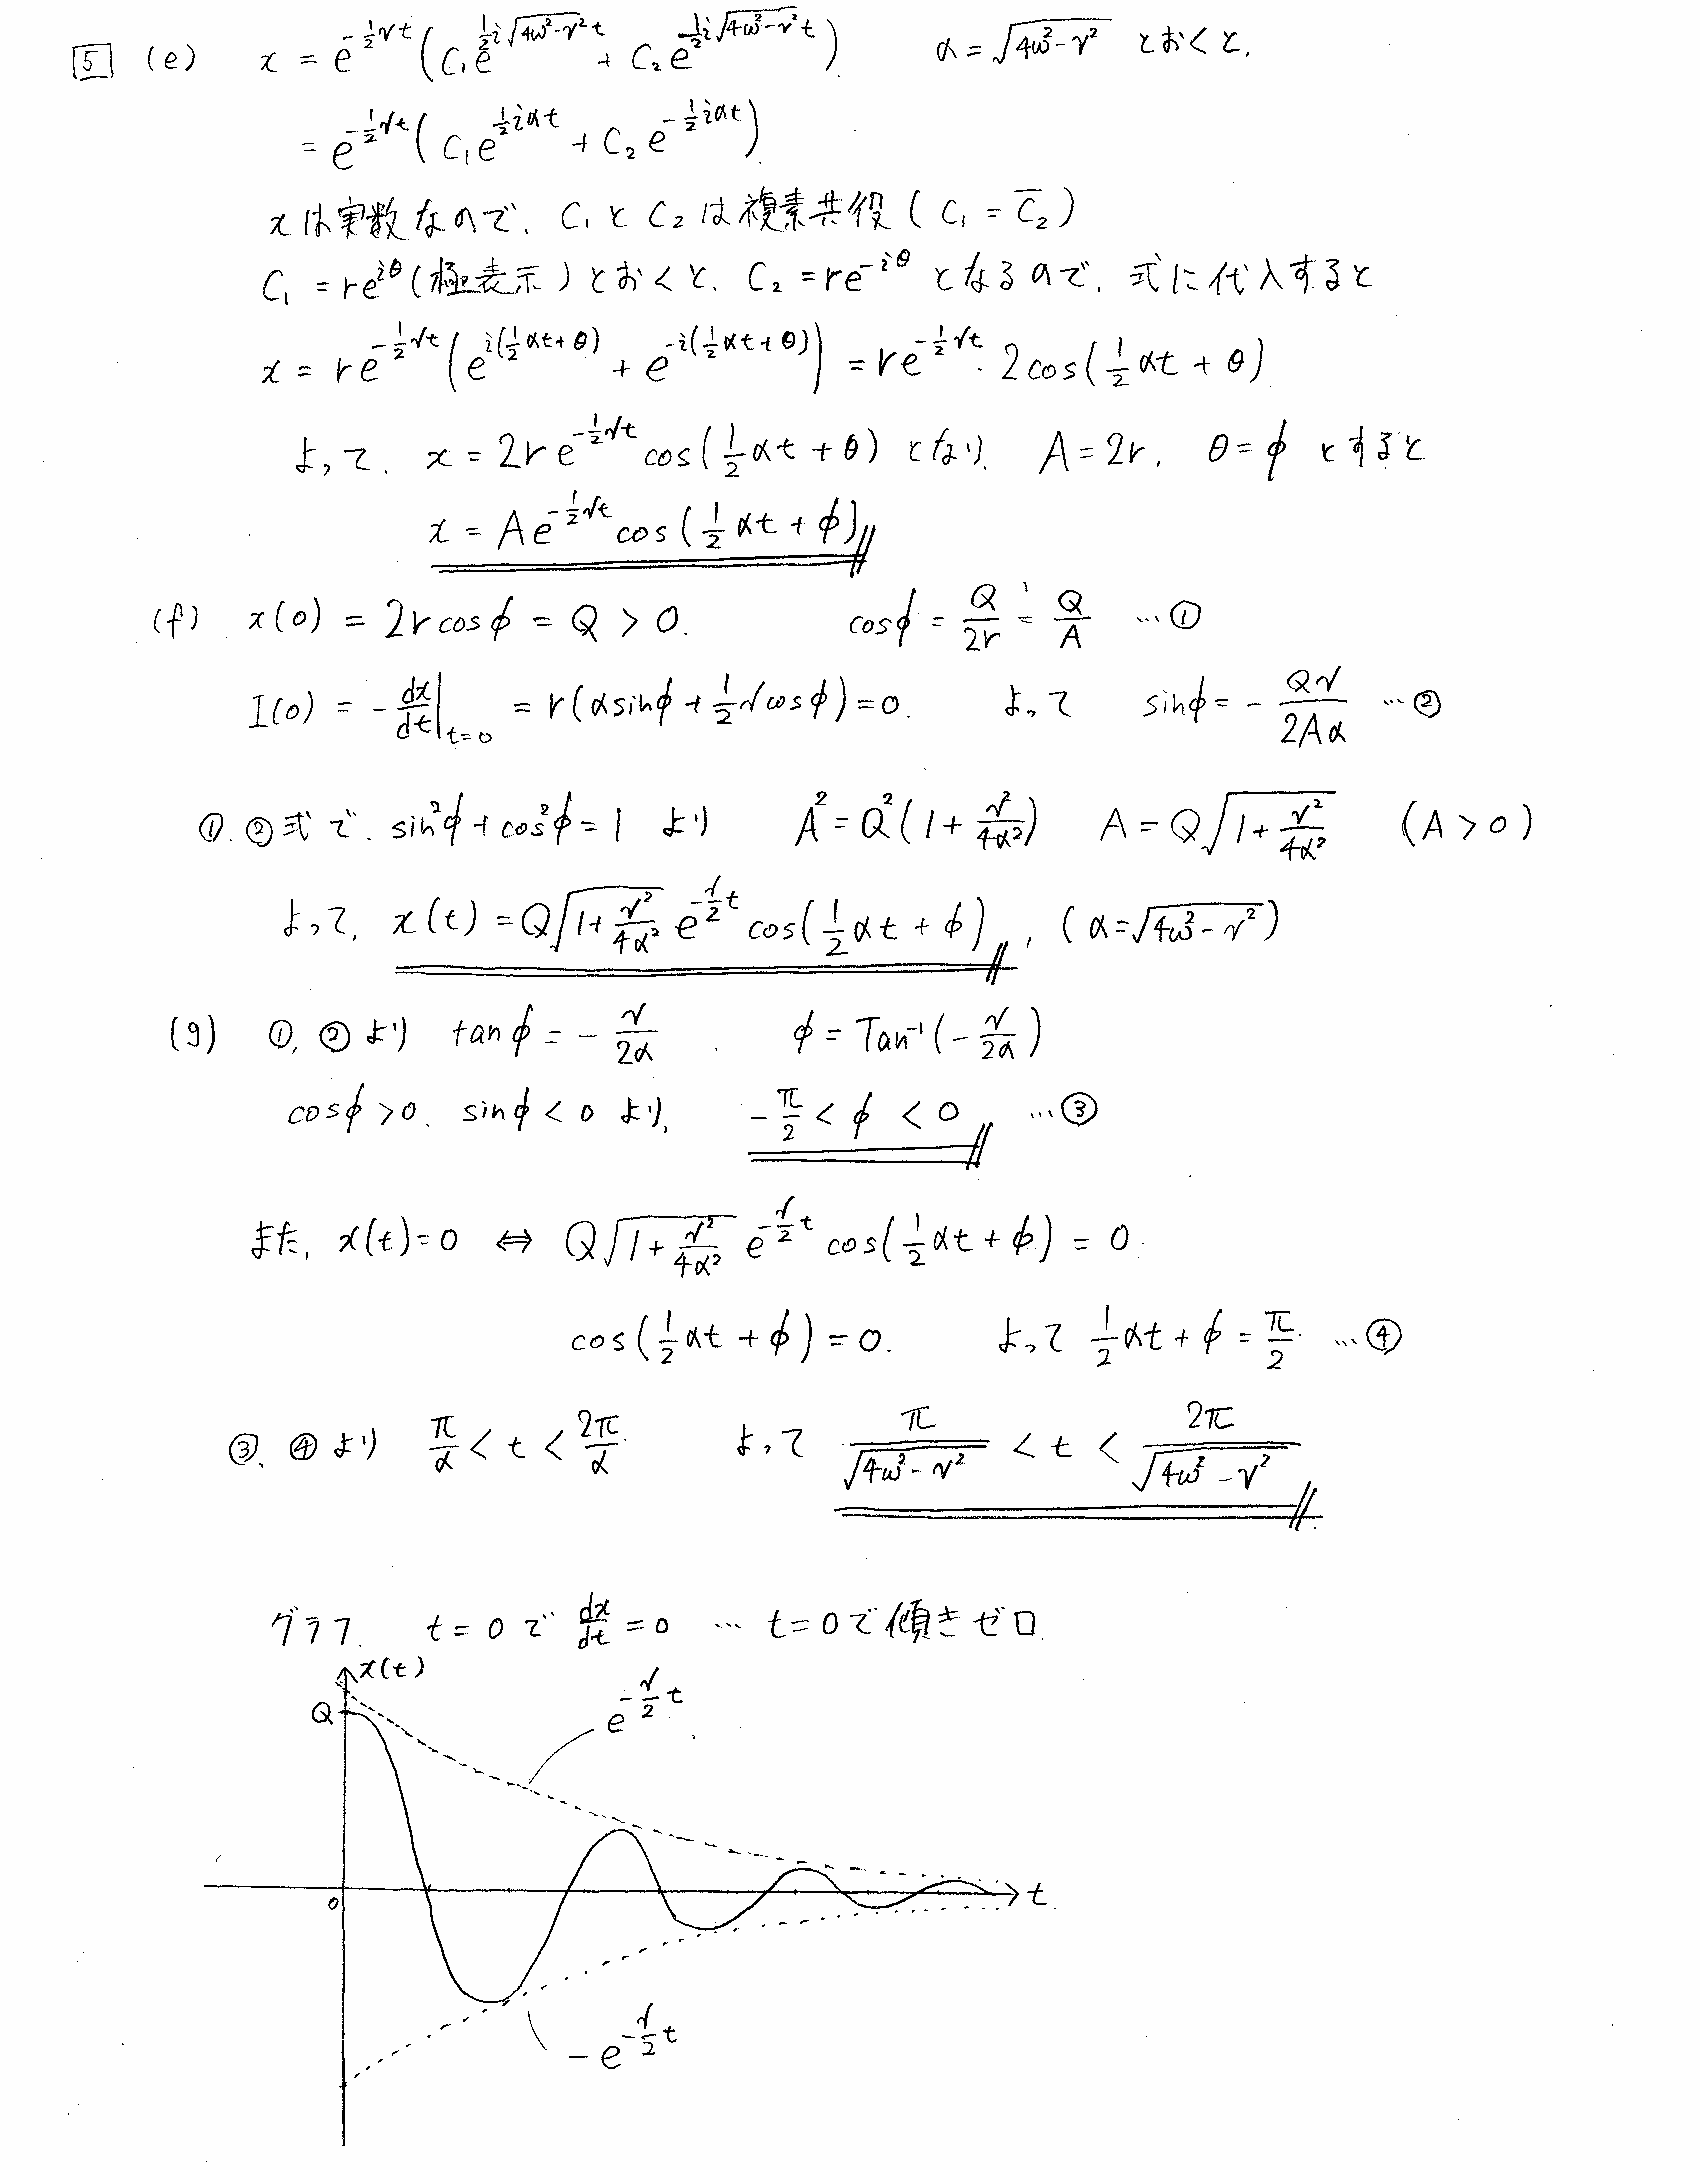 5 (e) x = e^{-\frac{1}{2}γt} ( C₁e^{\frac{1}{2}i√(4ω²-γ²)t} + C₂e^{-\frac{1}{2}i√(4ω²-γ²)t} ) α = √(4ω²-γ²) とおくと、
= e^{-\frac{1}{2}γt} ( C₁e^{\frac{1}{2}iαt} + C₂e^{-\frac{1}{2}iαt} )
xは実数なので、C₁とC₂は複素共役 ( C₁ = \overline{C₂} )
C₁ = re^{iθ} (極表示) とおくと、C₂ = re^{-iθ} となるので、式に代入すると
x = re^{-\frac{1}{2}γt} ( e^{i(\frac{1}{2}αt+θ)} + e^{-i(\frac{1}{2}αt+θ)} ) = re^{-\frac{1}{2}γt}・2cos(\frac{1}{2}αt + θ)
よって、x = 2re^{-\frac{1}{2}γt} cos(\frac{1}{2}αt + θ) となり、A = 2r, θ = φ とすると
x = Ae^{-\frac{1}{2}γt} cos(\frac{1}{2}αt + φ)
(f) x(0) = 2r cosφ = Q > 0. cosφ = \frac{Q}{2r} = \frac{Q}{A} … ①
I(0) = -\frac{dx}{dt}|_{t=0} = r(α sinφ + \frac{1}{2}γ cosφ) = 0. よって sinφ = -\frac{Qγ}{2Aα} … ②
①, ②式で、sin²φ + cos²φ = 1 より A² = Q²(1 + \frac{γ²}{4α²}) A = Q√(1 + \frac{γ²}{4α²}) (A > 0)
よって、x(t) = Q√(1 + \frac{γ²}{4α²}) e^{-\frac{γ}{2}t} cos(\frac{1}{2}αt + φ), (α = √(4ω²-γ²))
(g) ①, ②より tanφ = -\frac{γ}{2α}. φ = Tan⁻¹(-\frac{γ}{2α})
cosφ > 0, sinφ < 0 より、-\frac{π}{2} < φ < 0 … ③
また、x(t) = 0 ⇔ Q√(1 + \frac{γ²}{4α²}) e^{-\frac{γ}{2}t} cos(\frac{1}{2}αt + φ) = 0.
cos(\frac{1}{2}αt + φ) = 0. よって \frac{1}{2}αt + φ = \frac{π}{2} … ④
③, ④より \frac{π}{α} < t < \frac{2π}{α}. よって \frac{π}{√(4ω²-γ²)} < t < \frac{2π}{√(4ω²-γ²)}
グラフ. t = 0で \frac{dx}{dt} = 0 … t = 0で傾きゼロ
x(t)
Q
e^{-\frac{γ}{2}t}
0
t
-e^{-\frac{γ}{2}t}